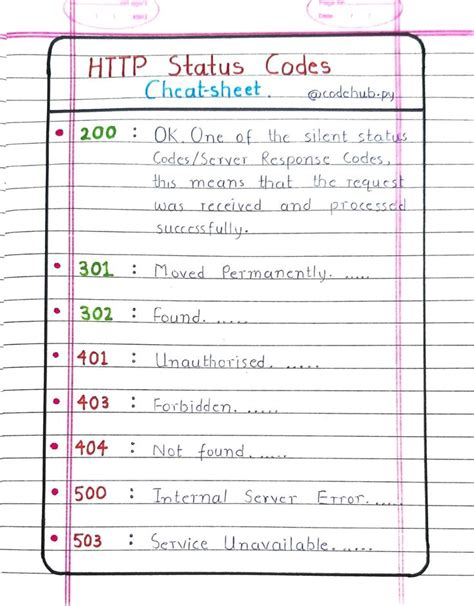 HTTP Status Codes
Cheat-sheet.
@codehub.py
200 : OK. One of the silent status
Codes/Server Response Codes,
this means that the request
was received and processed
successfully.
301 : Moved Permanently. .....
302 : Found. .....
401 : Unauthorised. .....
403 : Forbidden. .....
404 : Not found. .....
500 : Internal Server Error. .....
503 : Service Unavailable. .....